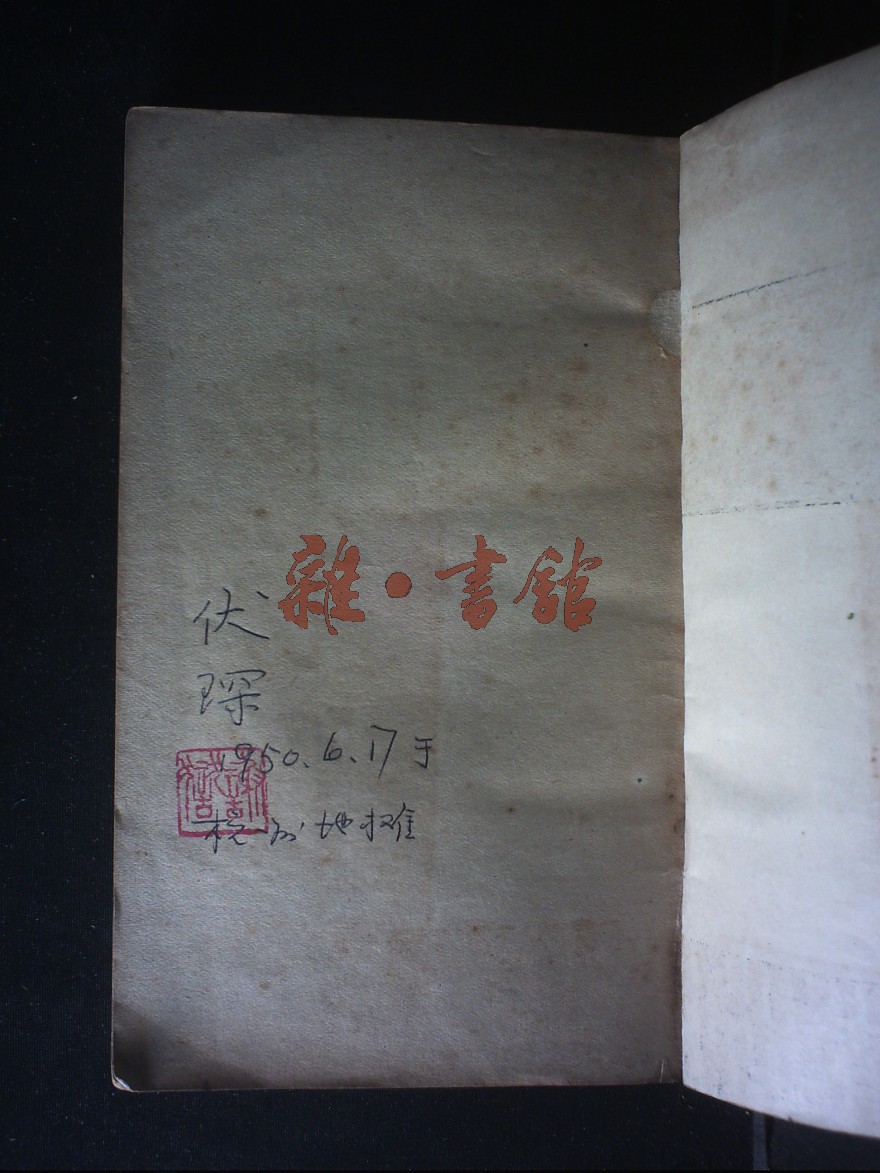 雜·書館
伏
琛
1950.6.17于
杭州地摊